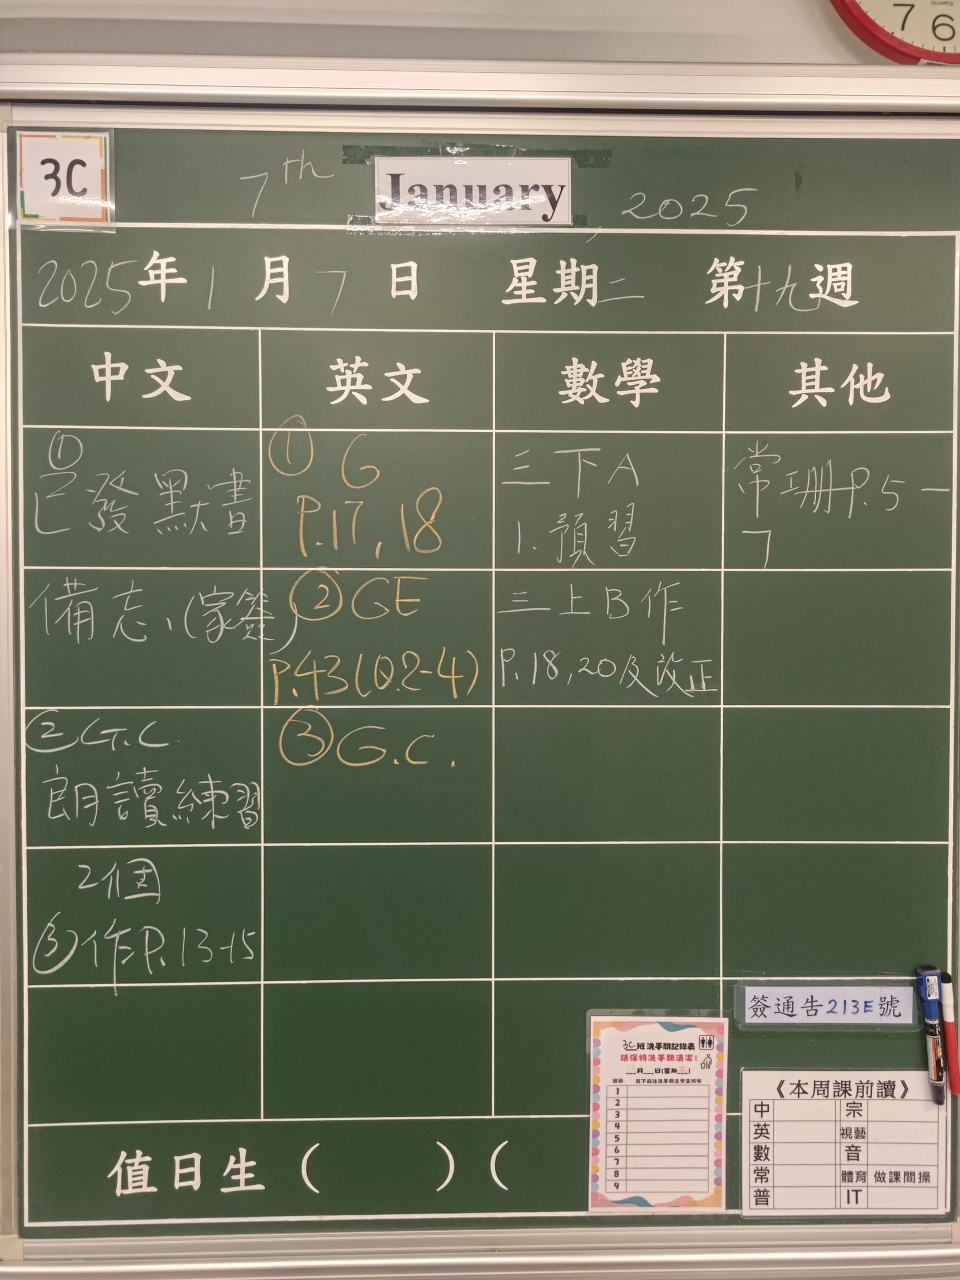 QUARTZ
7 6
3C
7th January, 2025
2025年1月7日 星期二 第十九週
中文 英文 數學 其他
①已發默書
備忘、(家簽)
②G.C.
朗讀練習
2個
③作P.13-15
① G
P.17, 18
② GE
P.43(Q.2-4)
③ G.C.
三下A
1.預習
三上B作
P.18,20及改正
常珊P.5-
7
簽通告213E號
3C班洗手間記錄表
請保持洗手間清潔!
___月___日(星期___)
1
2
3
4
5
6
7
8
9
《本周課前讀》
中 宗
英 視藝
數 音
常 體育 做課間操
普 IT
值日生( )(